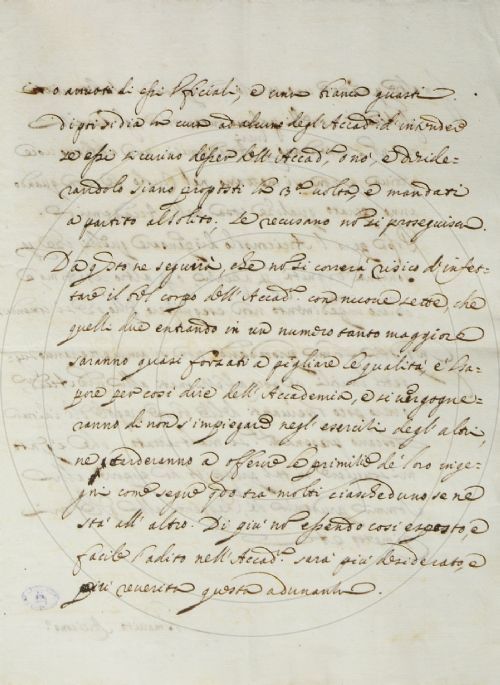 o arruoti di essi Officiali, e uinti bianca guasti.
Di poi si dia la cura ad alcuno degl'Accad.ci d'intendere
se essi si curino d'esser dell'Accad.a, o nò, e deside-
randolo siano proposti la 3.a uolta, e mandati
a partito assoluto, se recusano no si proseguisca.
Da qsto ne seguirà, che nò si correrà risico d'infet-
tare il bel corpo dell'Accad.a con nuoue sette, che
quelli due entrando in un numero tanto maggiore
saranno quasi forzati a pigliare le qualità, e 'l sa-
pore per così dire dell'Accademia, e si uergogne-
ranno di non s'impiegare negl'esercizi degl'altri,
ne tarderanno a offerire le primizie de' loro inge-
gni come segue qdo tra molti ciascheduno se ne
stà all'altro. Di più nò essendo così esposto, e
facile l'adito nell'Accad.a sarà più desiderato, e
più reuerita questa adunanza.